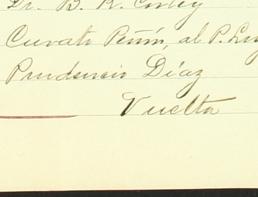 Dr. B. R. Corley
Curato Penín, al P. Luy
Prudencio Díaz
Vuelta